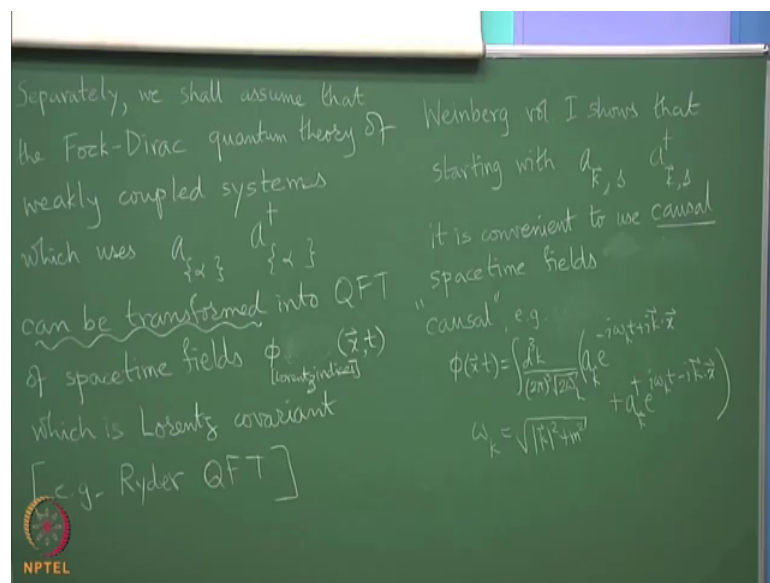 Separately, we shall assume that
the Fock-Dirac quantum theory of
weakly coupled systems
which uses a_{α} a†_{α}
can be transformed into QFT
of spacetime fields ϕ_[Lorentz indices] (x⃗,t)
which is Lorentz covariant
[e.g. Ryder QFT]
Weinberg vol I shows that
starting with a_{k⃗,s} a†_{k⃗,s}
it is convenient to use causal
spacetime fields
"causal", e.g.
ϕ(x⃗t) = ∫ d³k / ((2π)³ √2ω_k) (a_k⃗ e^{-iω_k t + ik⃗·x⃗}
+ a†_k⃗ e^{iω_k t - ik⃗·x⃗})
ω_k = √|k⃗|²+m²
NPTEL